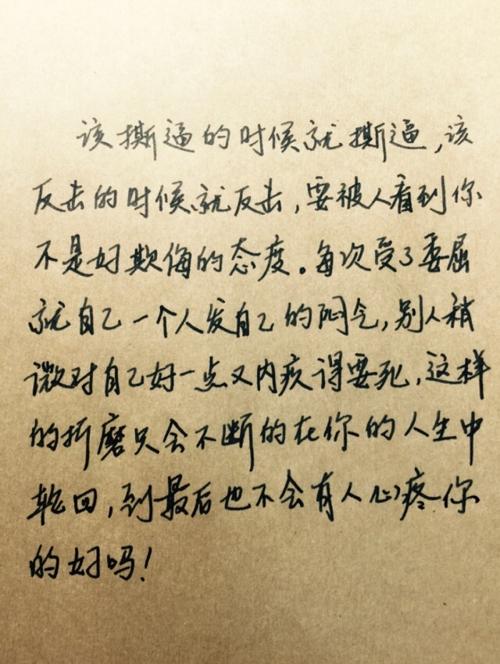 该撕逼的时候就撕逼,该
反击的时候就反击,要被人看到你
不是好欺侮的态度。每次受了委屈
就自己一个人发自己的闷气,别人稍
微对自己好一点又内疚得要死,这样
的折磨只会不断的在你的人生中
轮回,到最后也不会有人心疼你
的好吗!